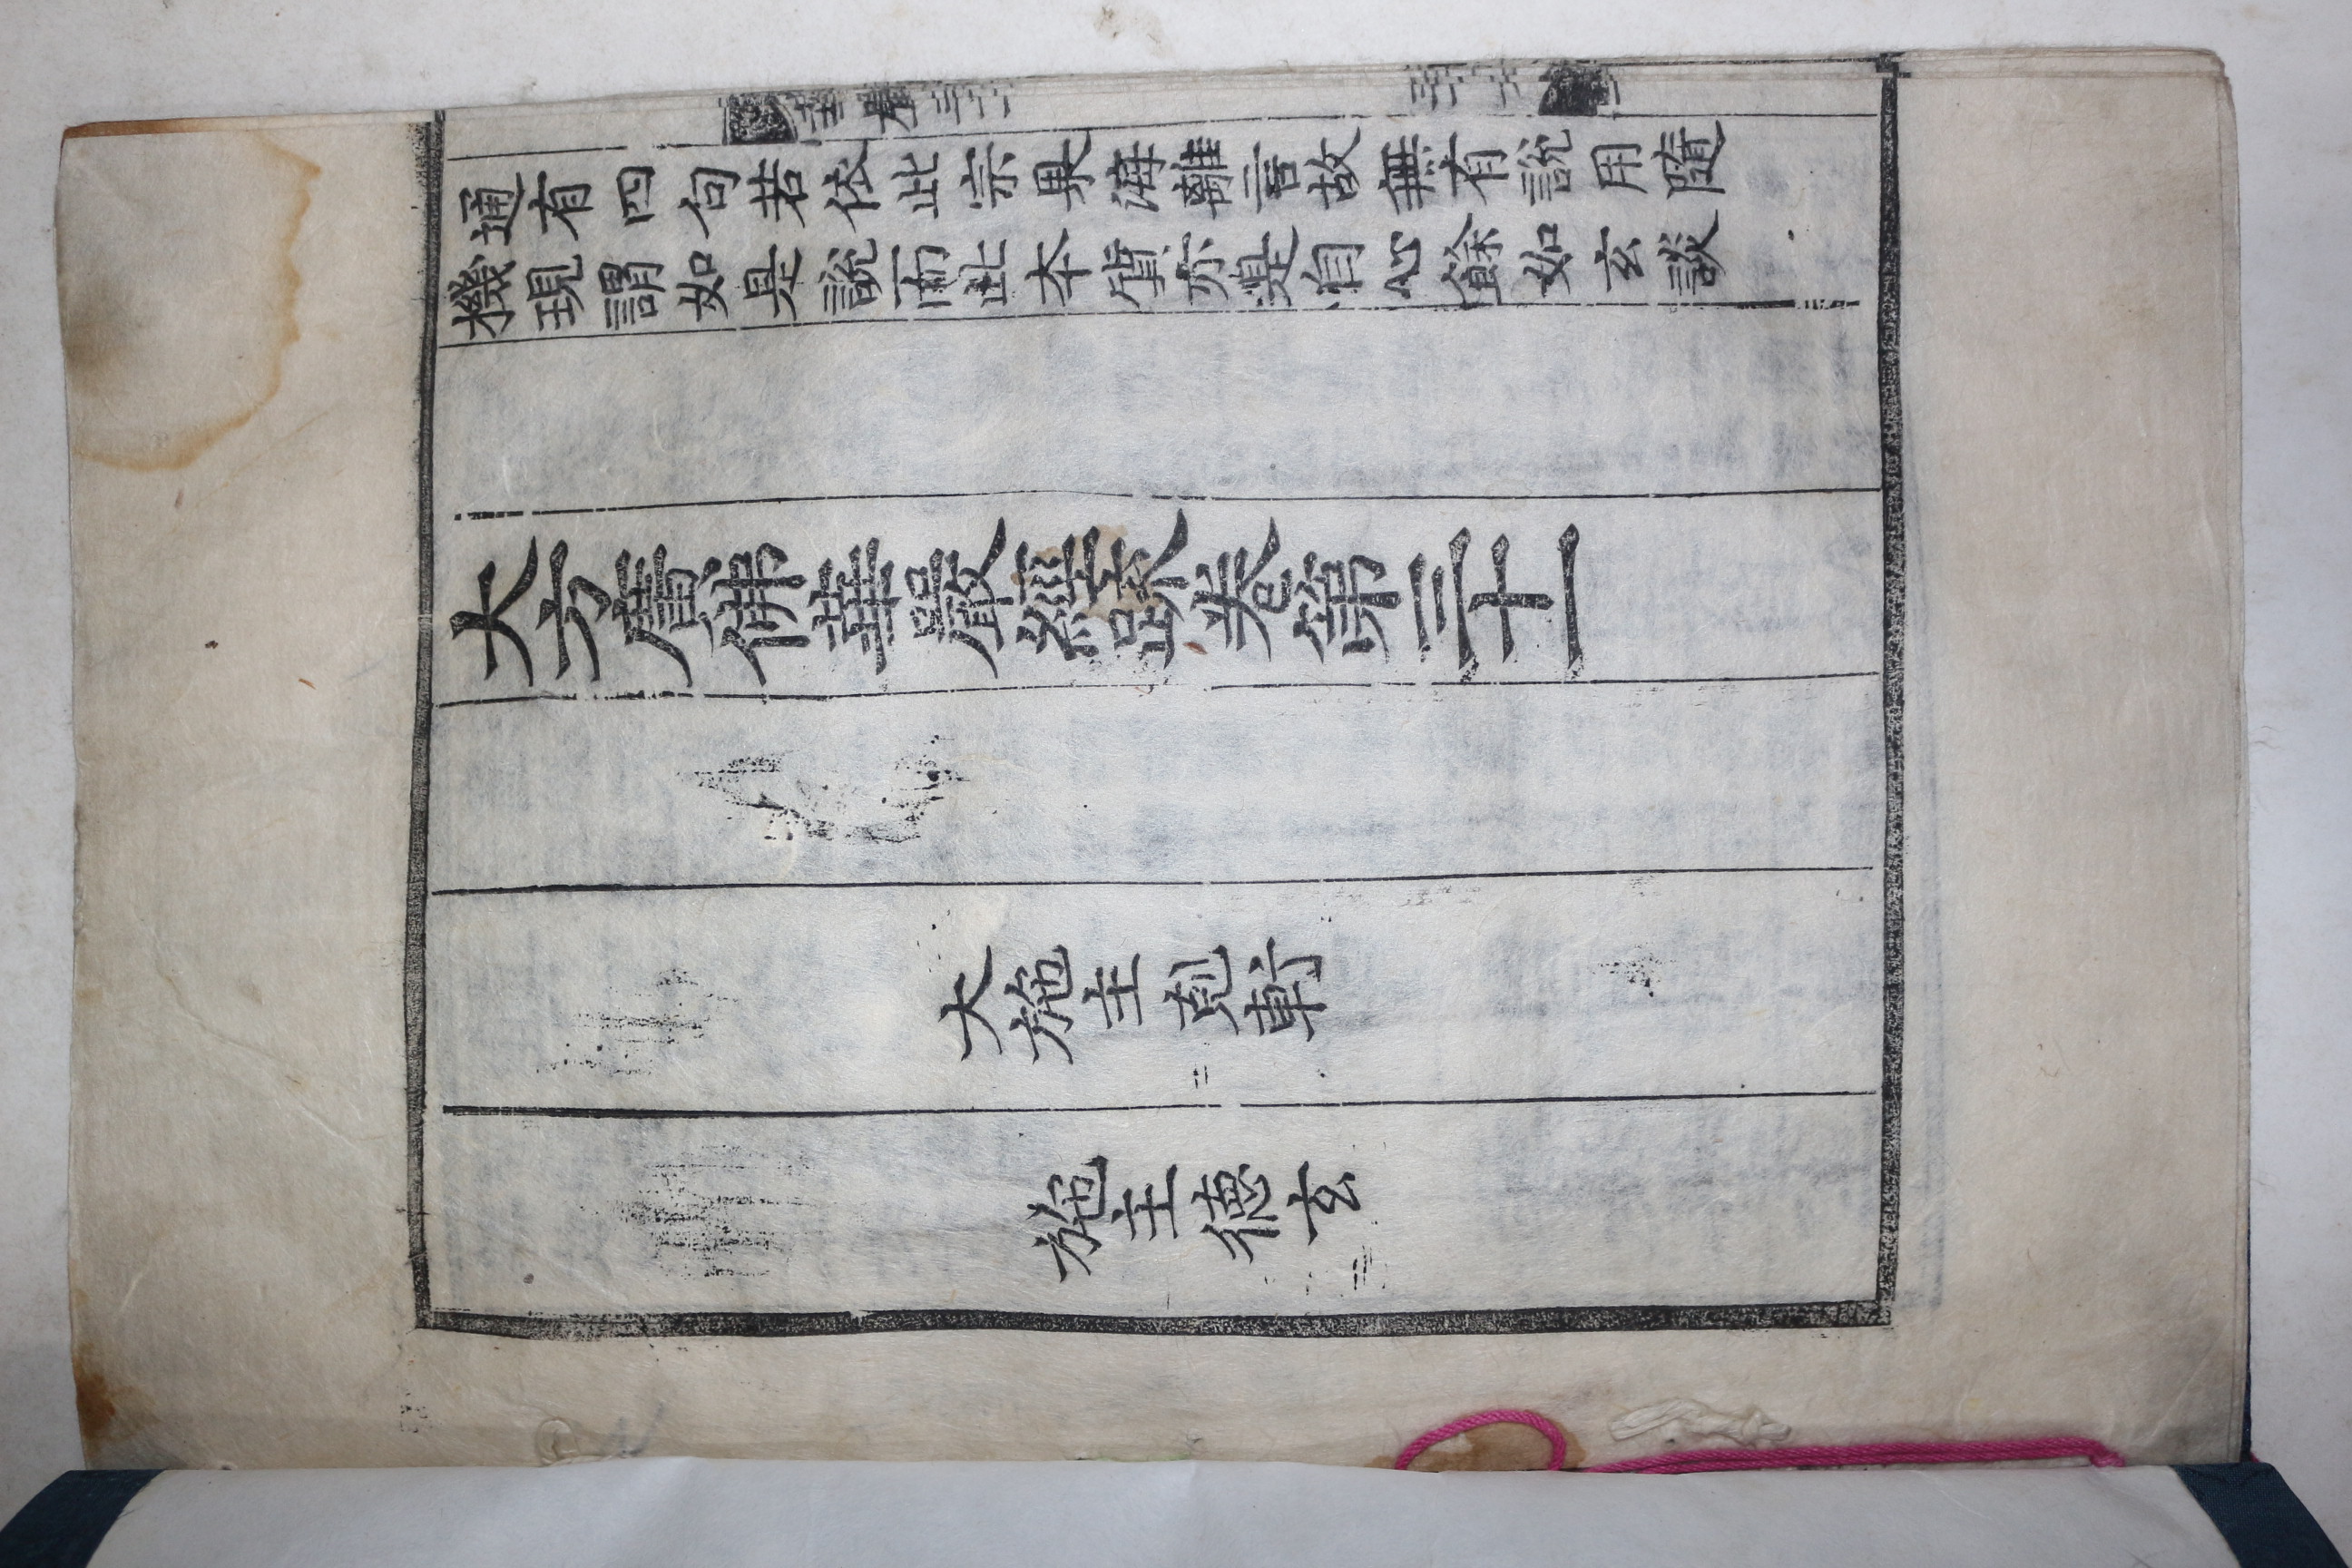 通有四句若依此宗果海離言故無有說用隨
機現謂如是說而此本質亦是自心餘如玄談
大方廣佛華嚴經疏卷第三十一
大施主
施主德玄